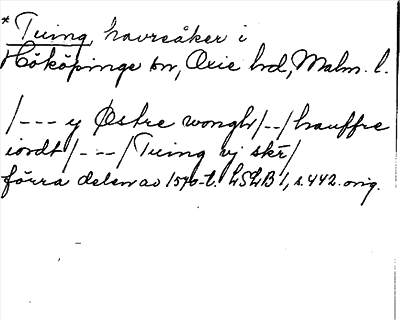 *Tuing havreåker i
Hököpinge sn, Oxie hd, Malm. l.
/--- y Østre wongh/--/hauffre
iordt/---/Tuing vj skr/
förra delen av 1570-t. LSLB 1, s. 442. orig.